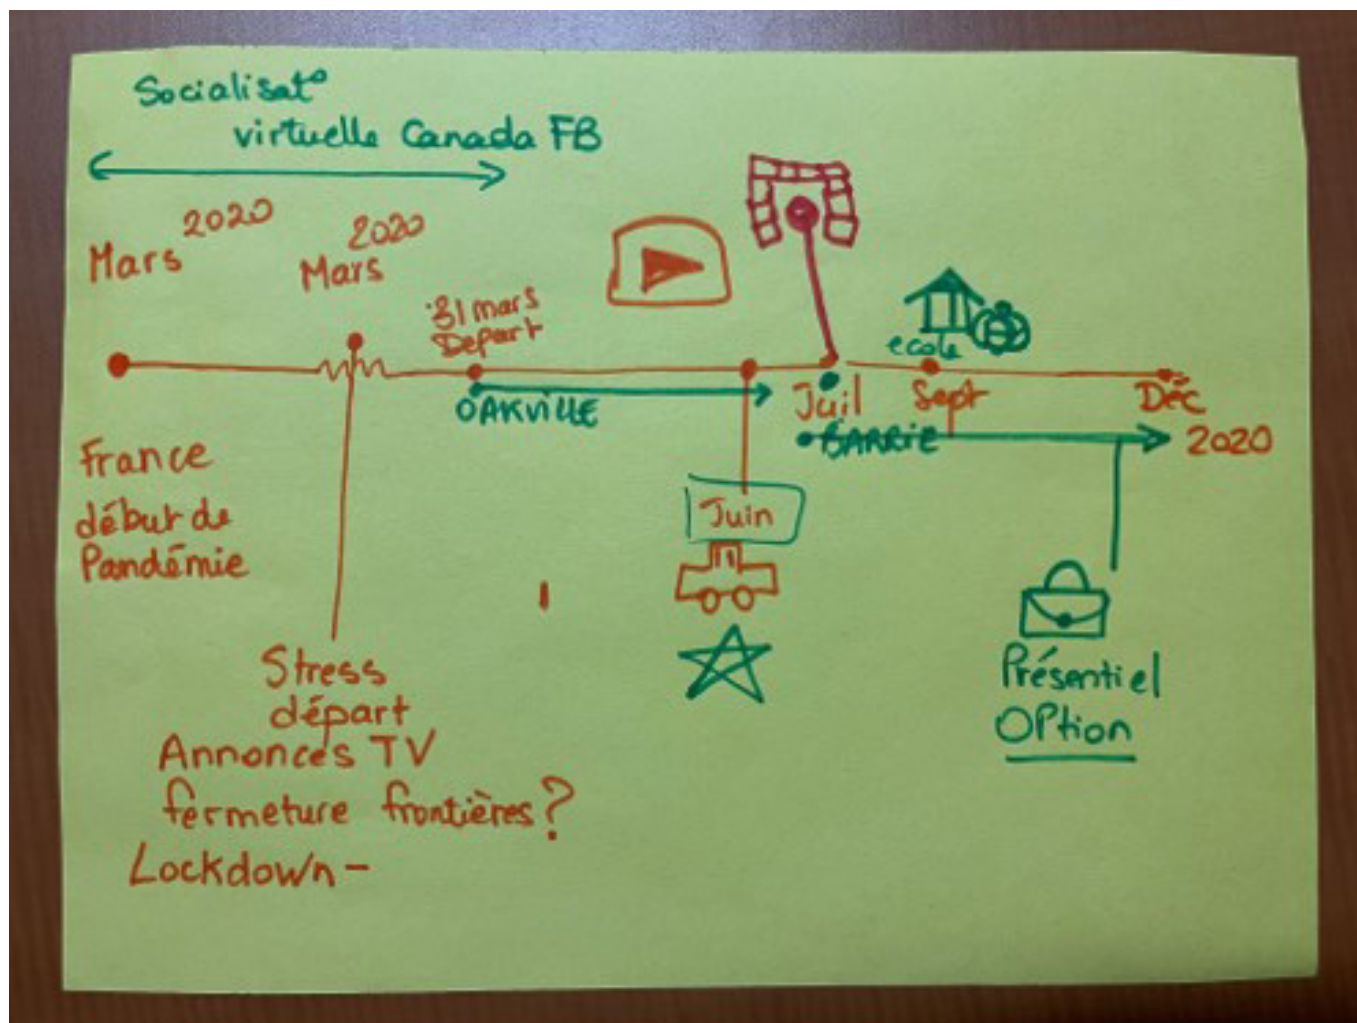 Socialisat°
virtuelle Canada FB
Mars 2020
2020
Mars
31 mars
Depart
OAKVILLE
ecole
Juil
Sept
Déc
2020
BARRIE
France
début de
Pandémie
Juin
Stress
départ
Annonces TV
fermeture frontières?
Lockdown -
Présentiel
OPtion